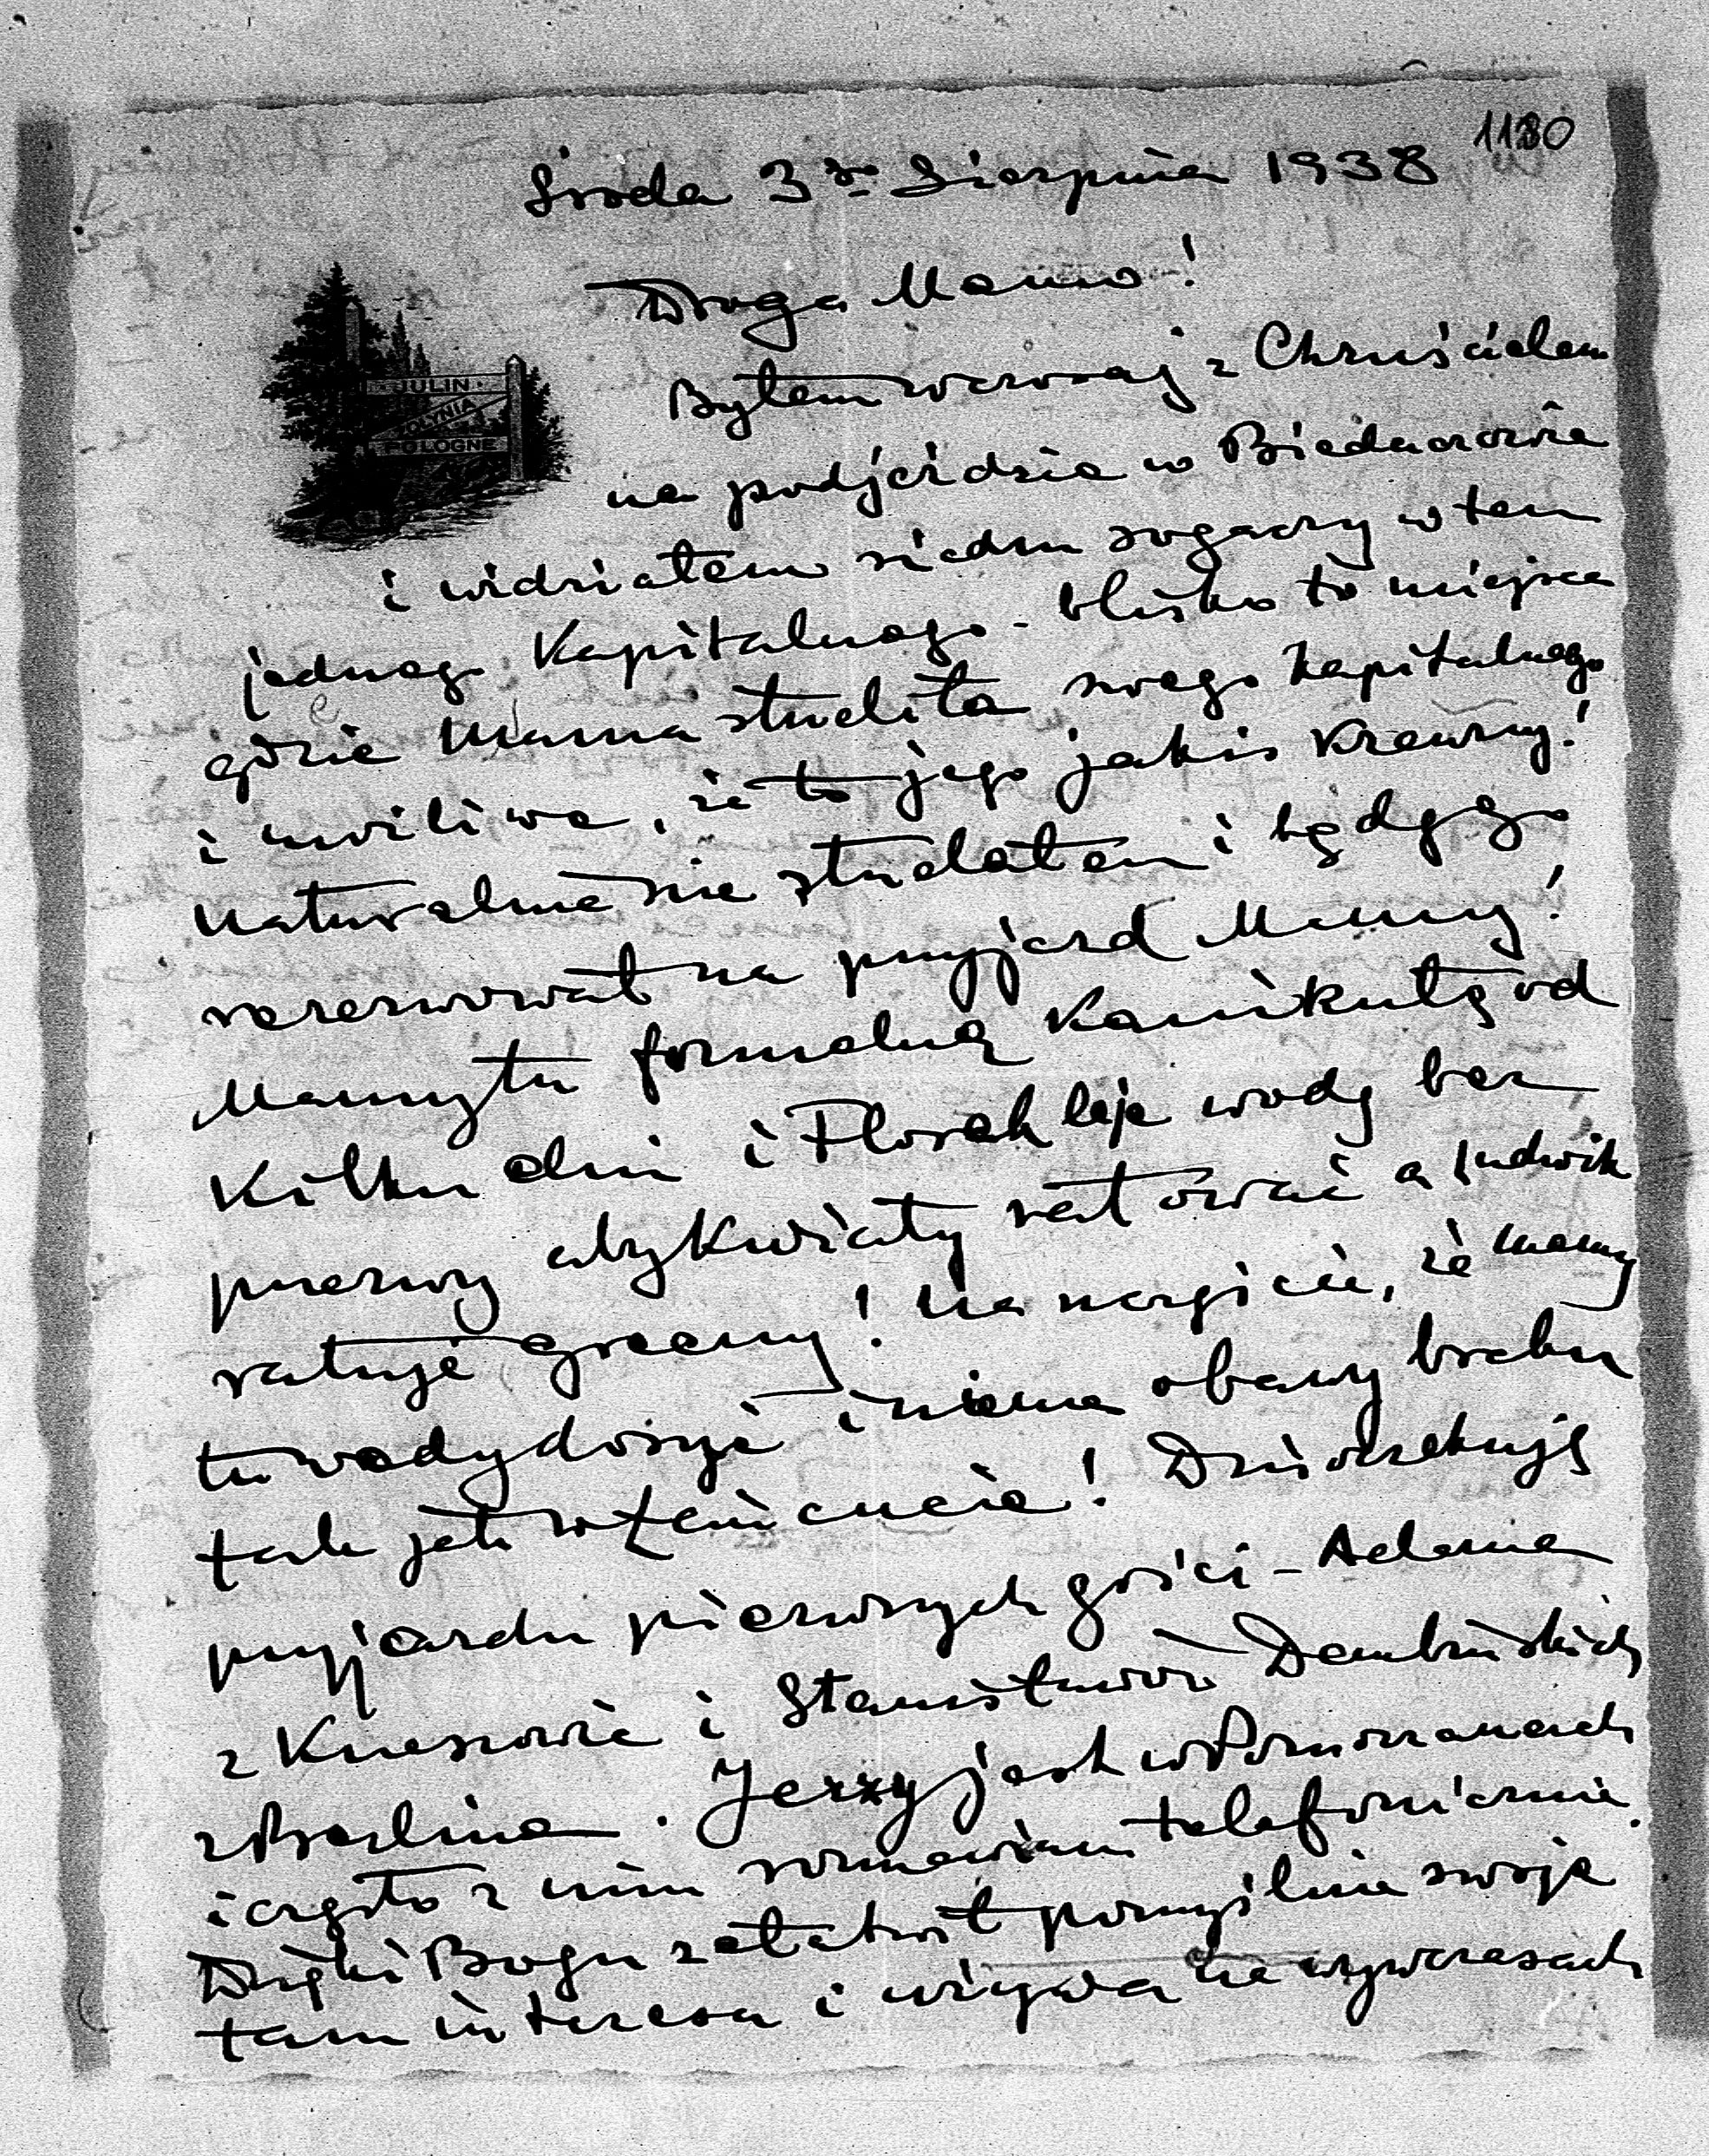 1180
Środa 3go Sierpnia 1938
Droga Mamo!
JULIN.
WOŁYNIA
POLOGNE
Byłem wczoraj z Chruścielem
na podjeździe w Biedaczowie
i widziałem siedm rogaczy w tem
jednego Kapitalnego - blisko to miejsca
gdzie Mama strzeliła swego kapitalnego
i możliwe, że to jego jakiś Krewny!
Naturalnie nie strzelałem i będę go
rezerwował na przyjazd Mamy!
Mamy tu formalną Kanikułę od
Kilku dni i Florek leje wodę bez
przerwy aby Kwiaty ratować a Ludwik
ratuje greeny! Na szczęście, że mamy
tu wody dosyć i niema obawy braku
tak jak w Łańcucie! Dziś oczekuję
przyjazdu pierwszych gości - Adama
z Krzeszowic i Stanisławów Dembińskich
z Berlina. Jerzy jest w Pomorzanach
i często z nim rozmawiam telefonicznie.
Dzięki Bogu załatwił pomyślnie swoje
tam interesa i używa na wywczasach